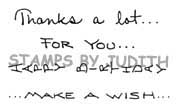 Thanks a lot...
FOR YOU...
STAMPS BY JUDITH
HAPPY BIRTHDAY
...MAKE A WISH...